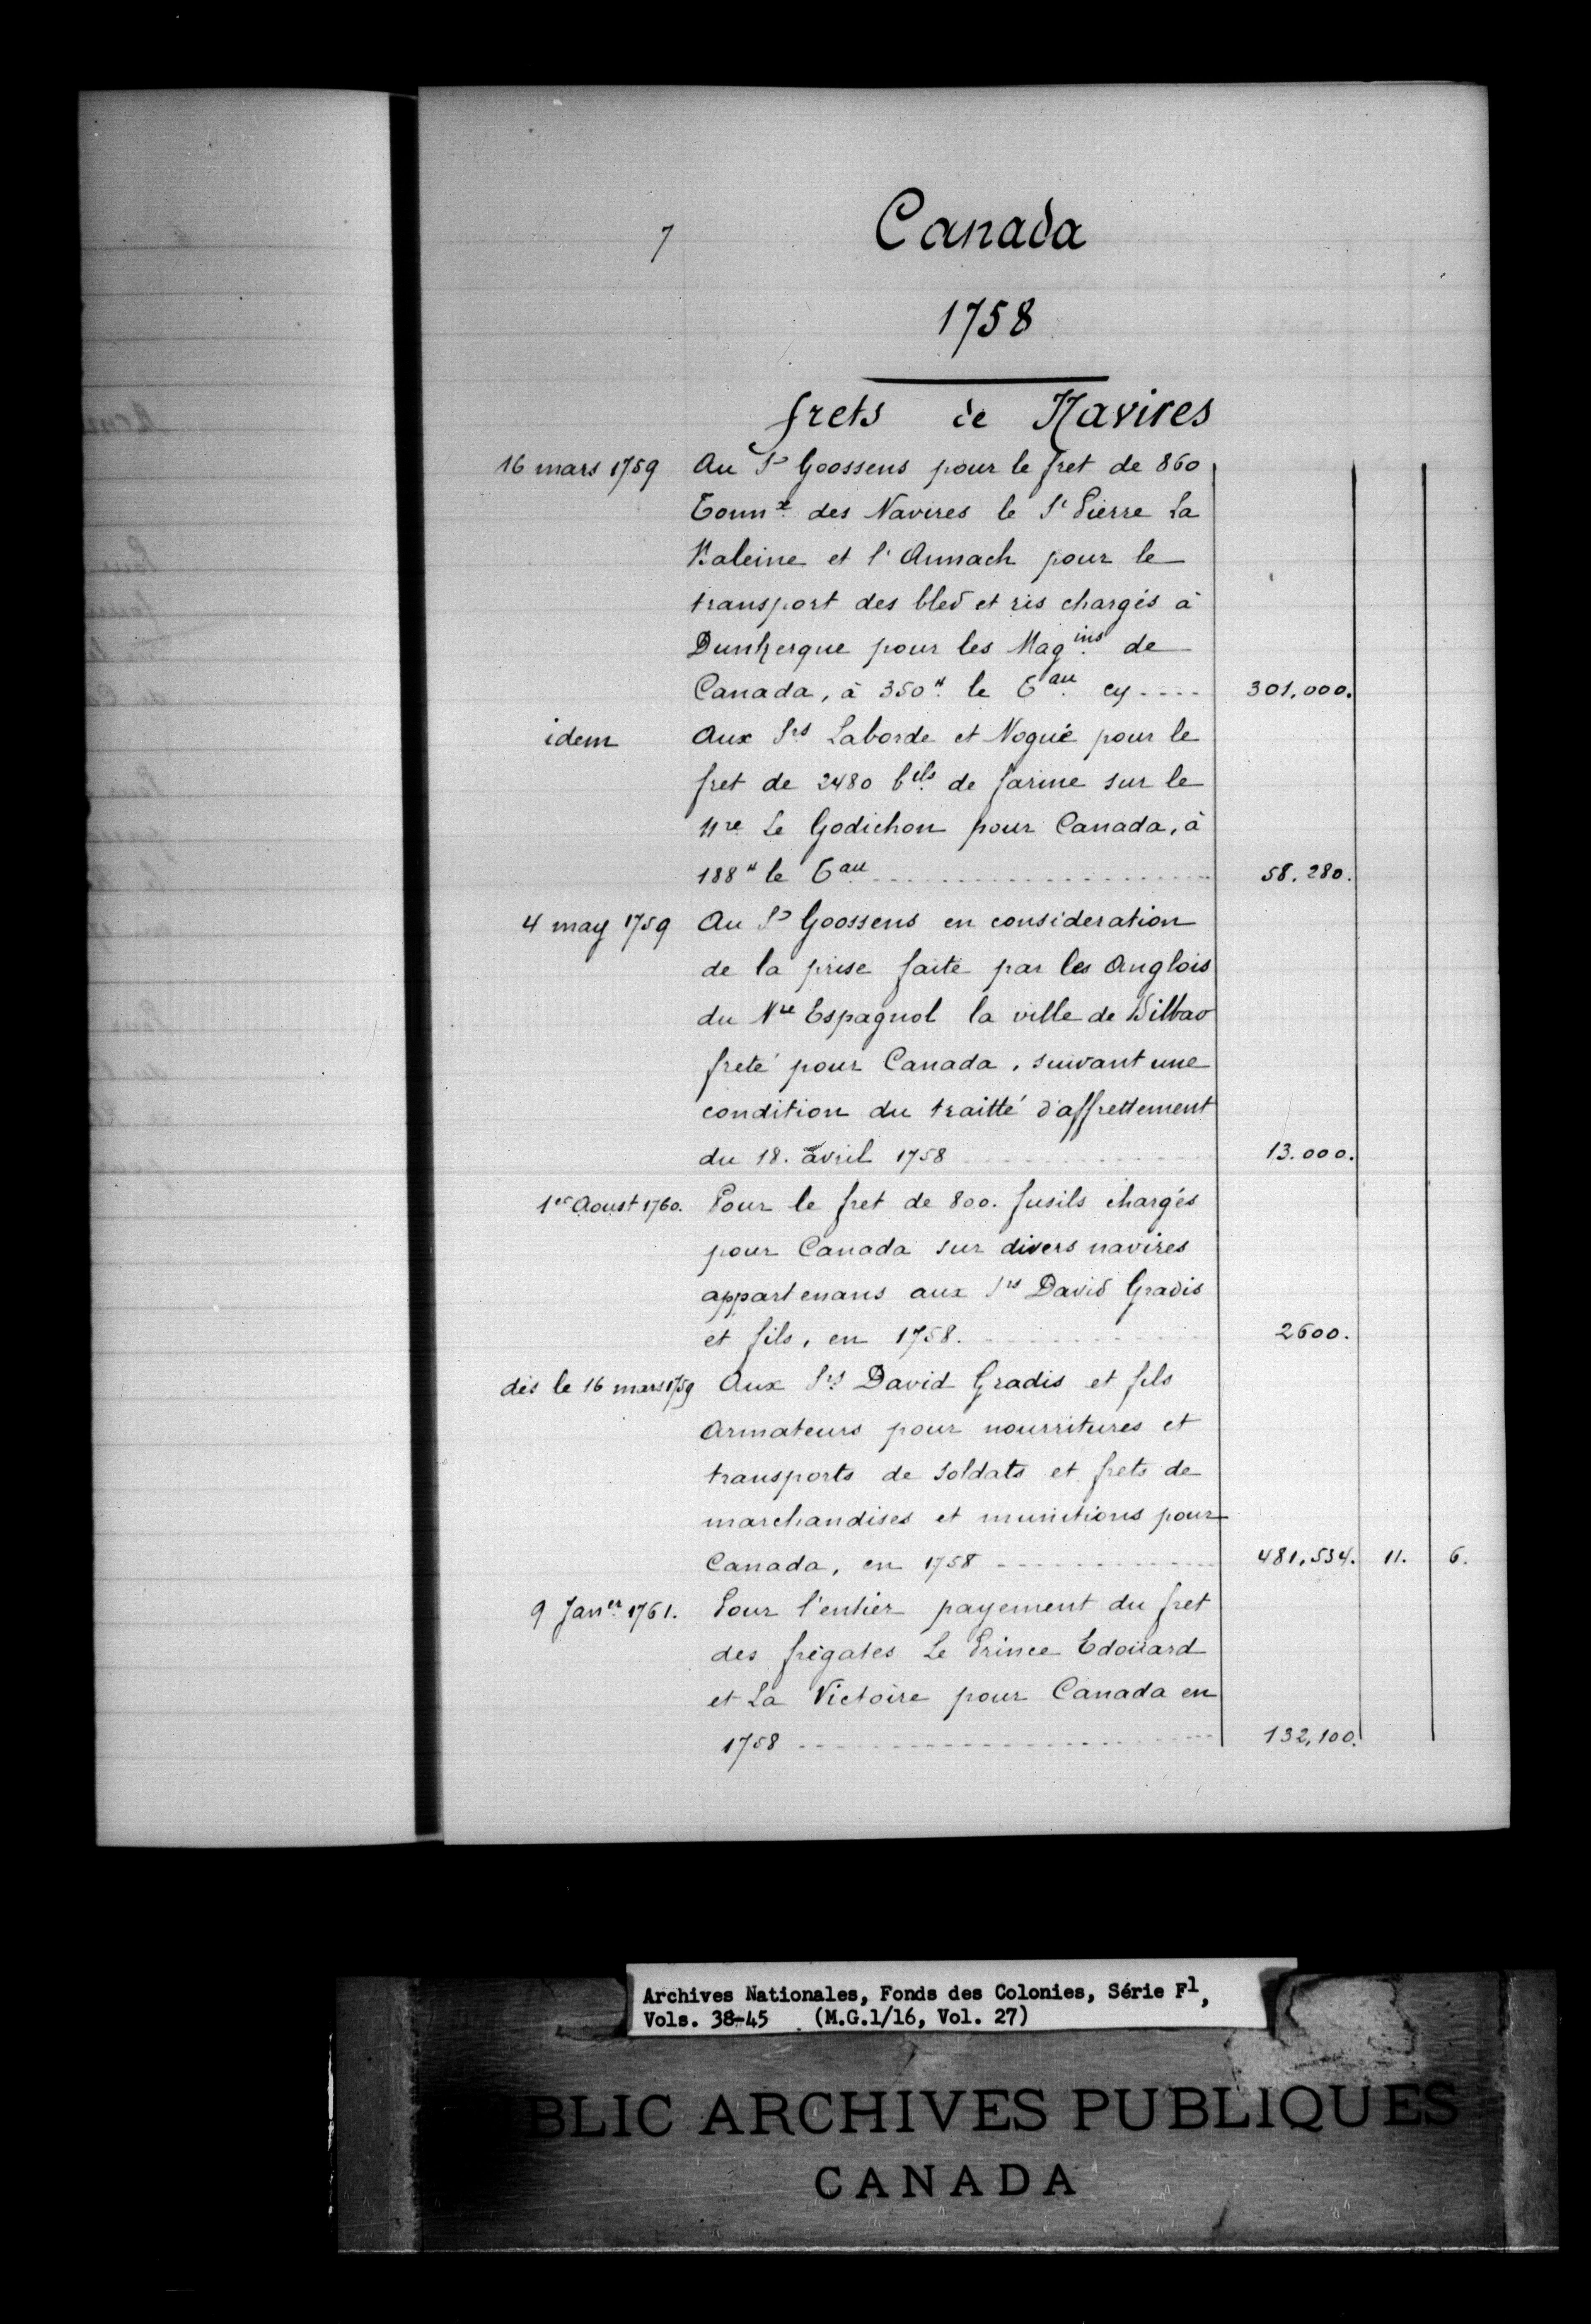 7
Canada
1758
frets de Navires
16 mars 1759 Au Sr Goossens pour le fret de 860
Tonnx des Navires le St Pierre La
Baleine et l'Annach pour le
transport des bled et ris chargés à
Dunkerque pour les Magins de
Canada, à 350# le Tau cy .... 301,000.
idem Aux Srs Laborde et Nogué pour le
fret de 2480 bils de farine sur le
Nre Le Godichon pour Canada, à
188# le Tau 58.280.
4 may 1759 Au Sr Goossens en consideration
de la prise faite par les Anglois
du Nre Espagnol la ville de Bilbao
freté pour Canada, suivant une
condition du traitté d'affrettement
du 18. avril 1758 13.000.
1er Aoust 1760. Pour le fret de 800. fusils chargés
pour Canada sur divers navires
appartenans aux Srs David Gradis
et fils, en 1758. 2600.
dès le 16 mars 1759 Aux Srs David Gradis et fils
Armateurs pour nourritures et
transports de soldats et frets de
marchandises et munitions pour
Canada, en 1758 481,534. 11. 6.
9 Janer 1761. Pour l'entier payement du fret
des frégates Le Prince Edoüard
et La Victoire pour Canada en
1758 132,100.
Archives Nationales, Fonds des Colonies, Série F1,
Vols. 38-45 (M.G.1/16, Vol. 27)
BLIC ARCHIVES PUBLIQUES
CANADA